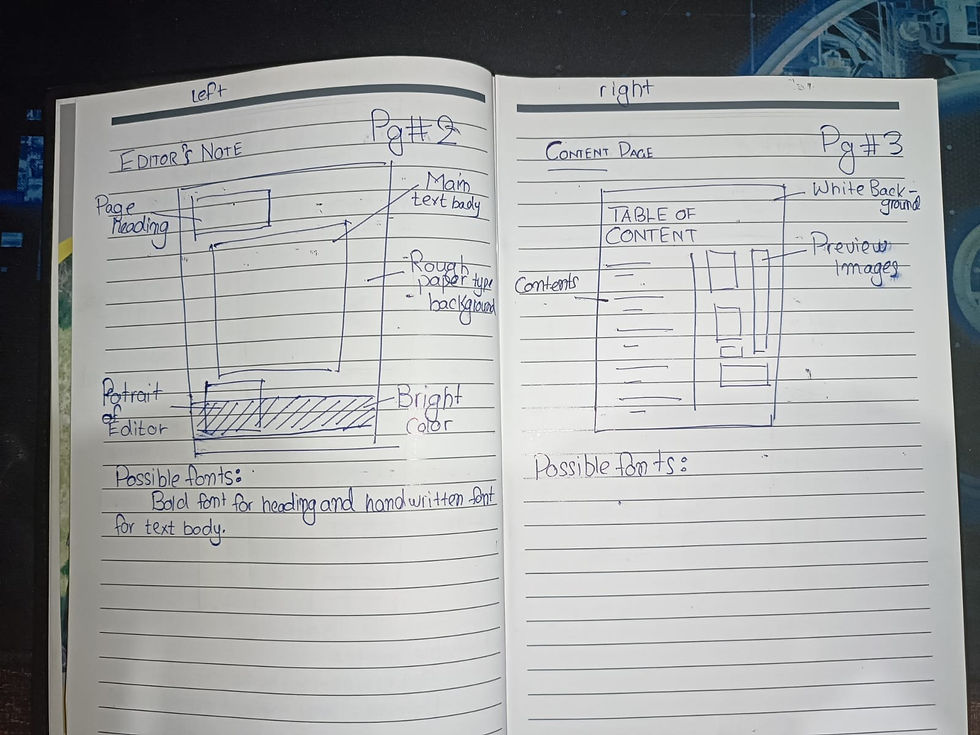 left
Pg#2
EDITOR'S NOTE
Page
Heading
Main
text body
Rough
paper type
background
Potrait
of
Editor
Bright
Color
Possible fonts:
Bold font for heading and handwritten font
for text body.
right
Pg#3
CONTENT PAGE
White Back-
ground
TABLE OF
CONTENT
Preview
Images
Contents
Possible fonts: